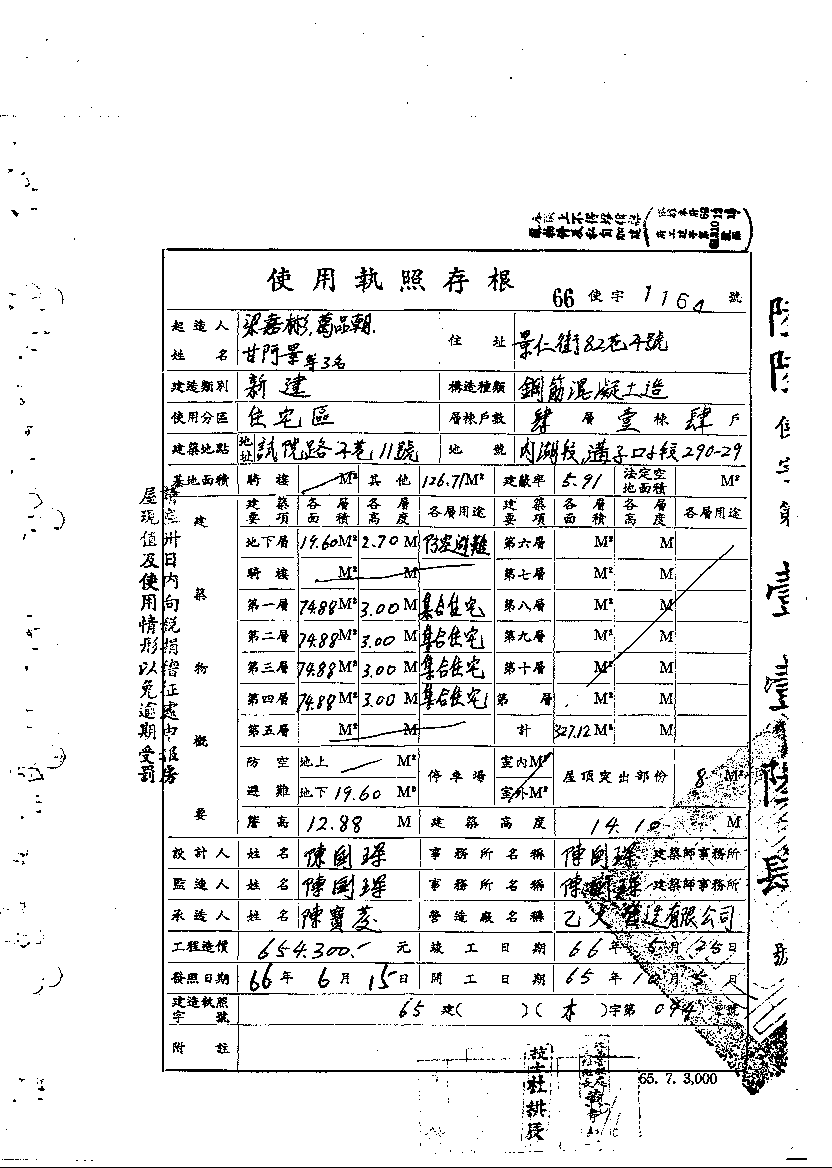 使用執照存根
66 使字 1164 號
起造人姓名 梁嘉彬,葛品朝,甘阿景等3名 住址 景仁街82巷4號
建造類別 新建 構造種類 鋼筋混凝土造
使用分區 住宅區 層棟戶數 肆層壹棟肆戶
建築地點 地址 試院路 巷11號 地號 內湖段,溝子口小段290-29
基地面積 騎樓 M² 其他 126.71M² 建蔽率 5.91 法定空地面積 M²
建築物概要
建築要項 各層面積 各層高度 各層用途 建築要項 各層面積 各層高度 各層用途
地下層 19.60M² 2.70M 防空避難 第六層 M² M
騎樓 M² M 第七層 M² M
第一層 74.88M² 3.00M 集合住宅 第八層 M² M
第二層 74.88M² 3.00M 集合住宅 第九層 M² M
第三層 74.88M² 3.00M 集合住宅 第十層 M² M
第四層 74.88M² 3.00M 集合住宅 第 層 M² M
第五層 M² M 計 327.12M² M
防空避難 地上 M² 停車場 室內M² 屋頂突出部份 8 M²
地下 19.60 M² 室外M²
簷高 12.88 M 建築高度 14.10 M
設計人 姓名 陳國琛 事務所名稱 陳國琛 建築師事務所
監造人 姓名 陳國琛 事務所名稱 陳國琛 建築師事務所
承造人 姓名 陳寶菱 營造廠名稱 乙大營造有限公司
工程造價 654,300.- 元 竣工日期 66年5月25日
發照日期 66年6月15日 開工日期 65年10月5日
建造執照字號 65 建( )(木)字第 號
附註
65. 7. 3,000
請空卅日內向稅捐稽征處申報房
屋現值及使用情形以免逾期受罰